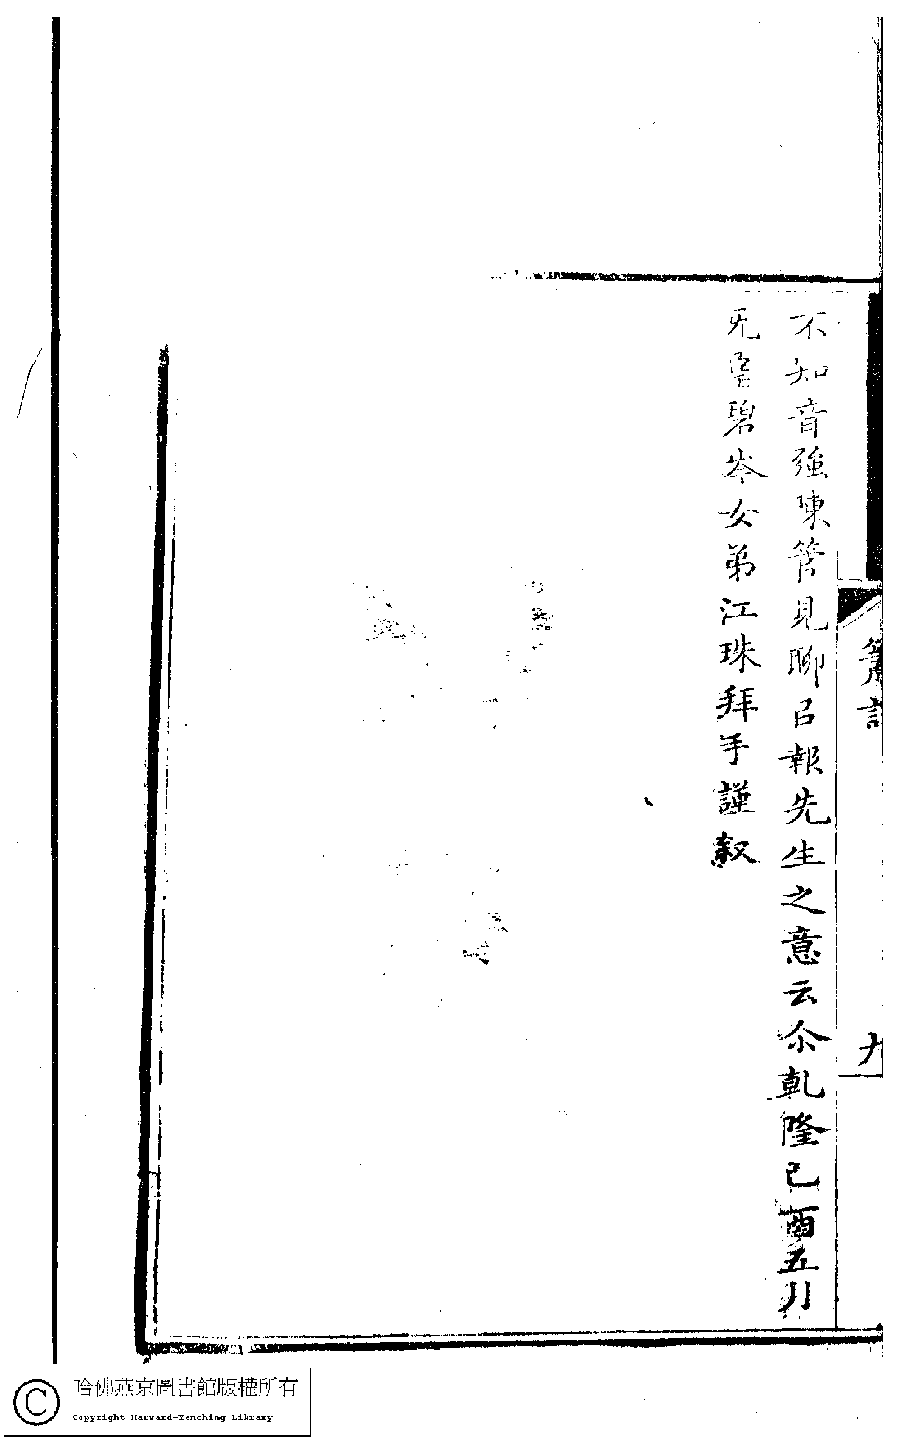 不知音強陳管見聊㠯報先生之意云尒乾隆己酉五月
旡咎碧岑女弟江珠拜手謹叙
九
哈佛燕京圖書館版權所有
Copyright Harvard-Yenching Library